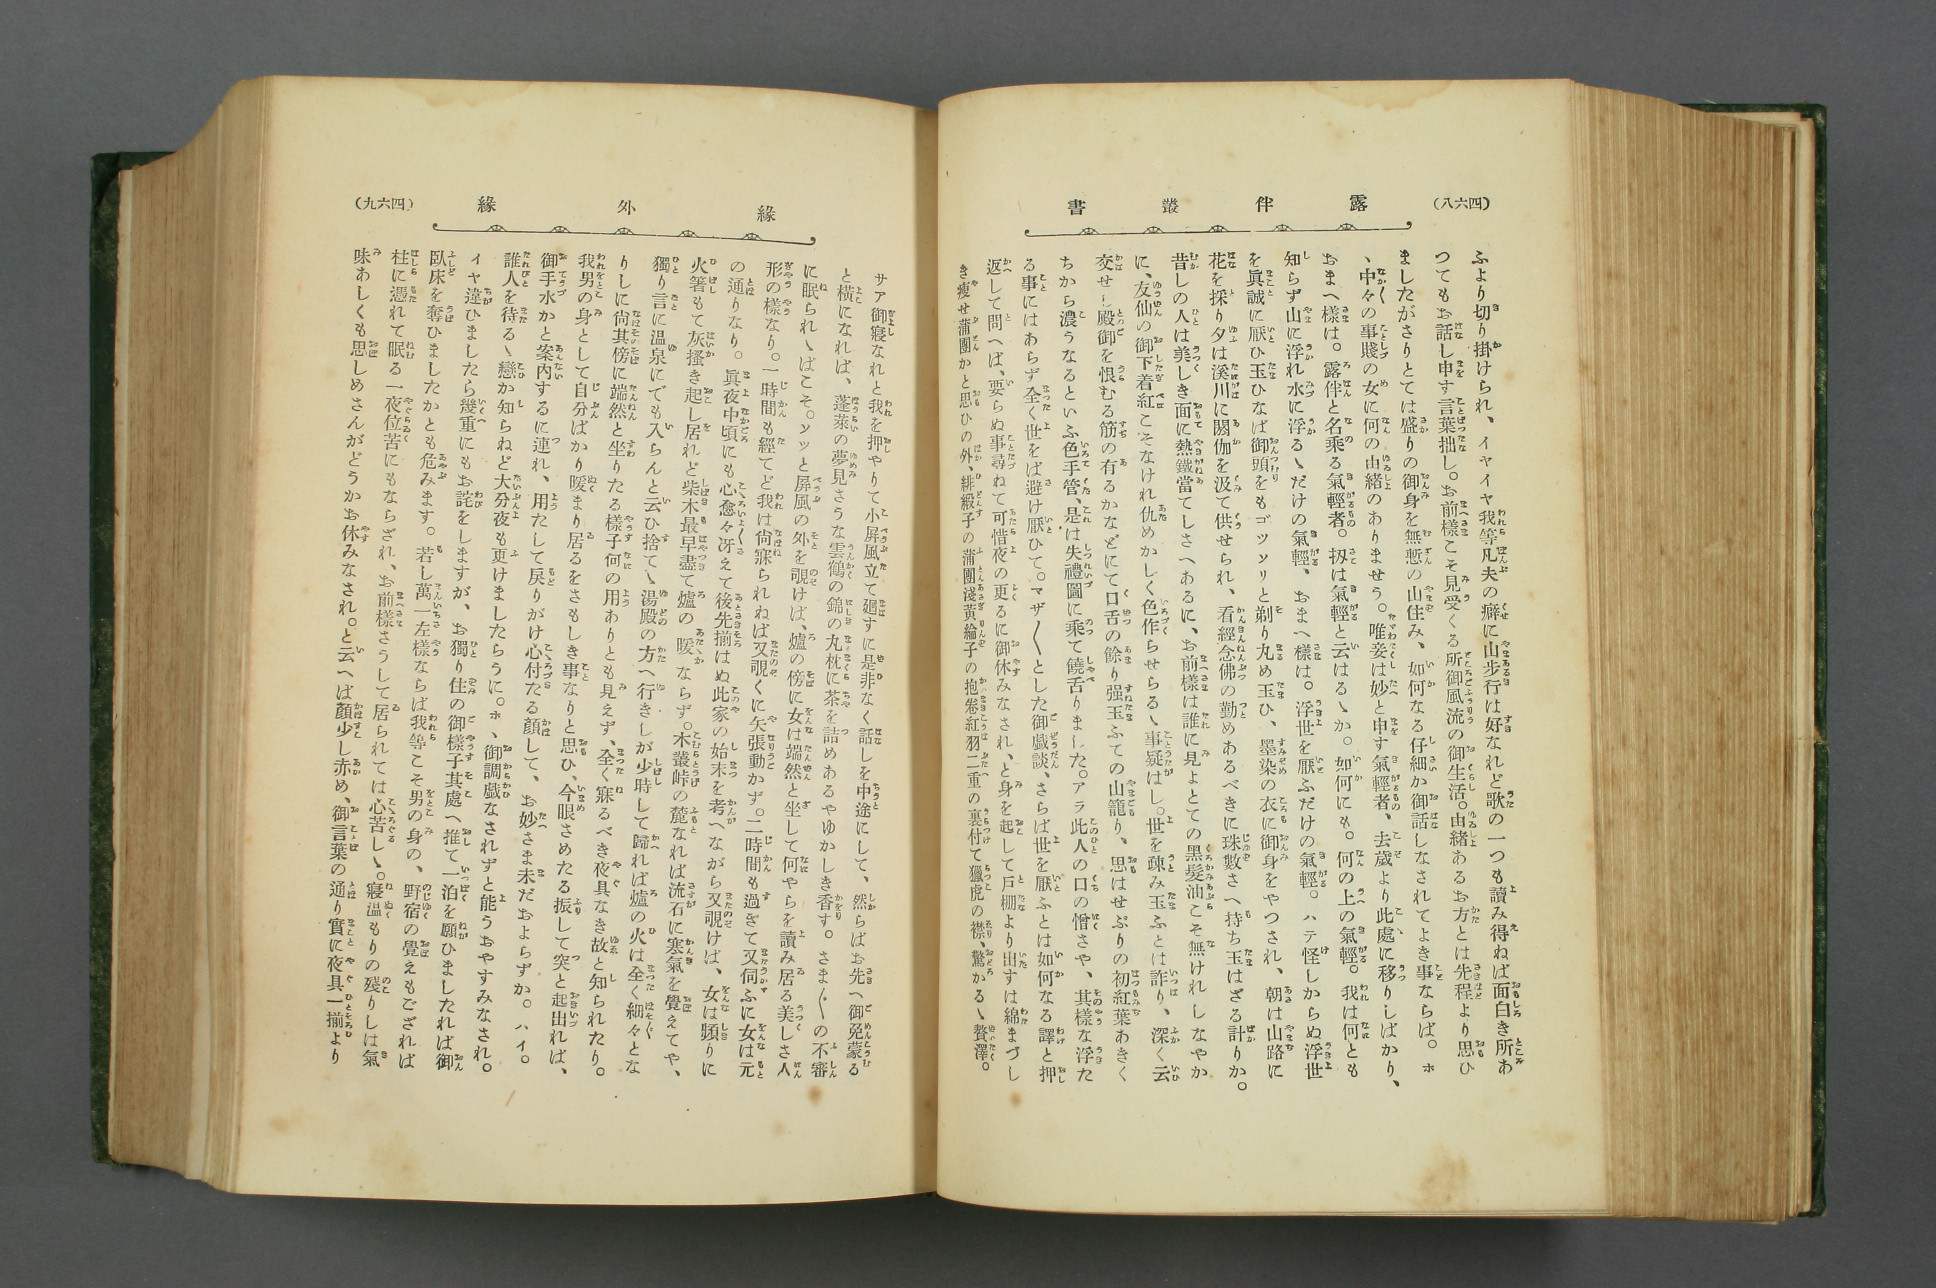 (四六八)
露伴叢書
ふより切り掛けられ、イヤイヤ我等凡夫の癖に山歩行は好なれど歌の一つも讀み得ねば面白き所あ
つてもお話し申す言葉拙し。お前樣こそ見受くる所御風流の御生活。由緒あるお方とは先程より思ひ
ましたがさりとては盛りの御身を無慙の山住み、如何なる仔細か御話しなされてよき事ならば。ホ
ヽ中々の事賤の女に何の由緒のありませう。唯妾は妙と申す氣輕者、去歳より此處に移りしばかり、
おまへ樣は。露伴と名乘る氣輕者。扨は氣輕と云はるヽか。如何にも。何の上の氣輕。我は何とも
知らず山に浮れ水に浮るヽだけの氣輕、おまへ樣は。浮世を厭ふだけの氣輕。ハテ怪しからぬ浮世
を眞誠に厭ひ玉ひなば御頭をもゴッソリと剃り丸め玉ひ、墨染の衣に御身をやつされ、朝は山路に
花を採り夕は溪川に閼伽を汲て供せられ、看經念佛の勤めあるべきに珠數さへ持ち玉はざる計りか。
昔しの人は美しき面に熱鐵當てしさへあるに、お前樣は誰に見よとての黑髮油こそ無けれしなやか
に、友仙の御下着紅こそなけれ仇めかしく色作らせらるヽ事疑はし。世を疎み玉ふとは詐り、深く云
交せし殿御を恨むる筋の有るかなどにて口舌の餘り强玉ふての山籠り、思はせぶりの初紅葉あきく
ちから濃うなるといふ色手管、是は失禮圖に乘て饒舌りました。アラ此人の口の憎さや、其樣な浮た
る事にはあらず全く世をば避け厭ひて。マザ〱とした御戲談、さらば世を厭ふとは如何なる譯と押
返して問へば、要らぬ事尋ねて可惜夜の更るに御休みなされ、と身を起して戸棚より出すは綿まづし
き瘦せ蒲團かと思ひの外、緋緞子の蒲團淺黃綸子の抱卷紅羽二重の裏付て獵虎の襟、驚かるヽ贅澤。
(四六九)
緣外緣
サア御寢なれと我を押やりて小屏風立て廻すに是非なく話しを中途にして、然らばお先へ御免蒙る
と橫になれば、蓬萊の夢見さうな雲鶴の錦の丸枕に茶を詰めあるやゆかしき香す。さま〲の不審
に眠られヽばこそ。ソッと屏風の外を覗けば、爐の傍に女は端然と坐して何やらを讀み居る美しさ人
形の樣なり。一時間も經てど我は尙寐られねば又覗くに矢張動かず。二時間も過ぎて又伺ふに女は元
の通りなり。眞夜中頃にも心愈々冴えて後先揃はぬ此家の始末を考へながら又覗けば、女は頸りに
火箸もて灰搔き起し居れど柴木最早盡て爐の暖かならず。木叢峠の麓なれば流石に寒氣を覺えてや、
獨り言に温泉にでも入らんと云ひ捨てヽ湯殿の方へ行きしが少時して歸れば爐の火は全く細々とな
りしに尙其傍に端然と坐りたる樣子何の用ありとも見えず、全く寐るべき夜具なき故と知られたり。
我男の身として自分ばかり暖まり居るをさもしき事なりと思ひ、今眼さめたる振して突と起出れば、
御手水かと案内するに連れ、用たして戾りがけ心付たる顏して、お妙さま未だおよらずか。ハイ。
誰人を待るヽ戀か知らねど大分夜も更けましたらうに。ホヽ御調戲なされずと能うおやすみなされ。
イヤ違ひましたら幾重にもお詫をしますが、お獨り住の御樣子其處へ推て一泊を願ひましたれば御
臥床を奪ひましたかとも危みます。若し萬一左樣ならば我等こそ男の身の、野宿の覺えもござれば
柱に憑れて眠る一夜位苦にもならざれ、お前樣さうして居られては心苦しヽ。寢温もりの殘りしは氣
味あしくも思しめさんがどうかお休みなされ。と云へば顏少し赤め、御言葉の通り實に夜具一揃より